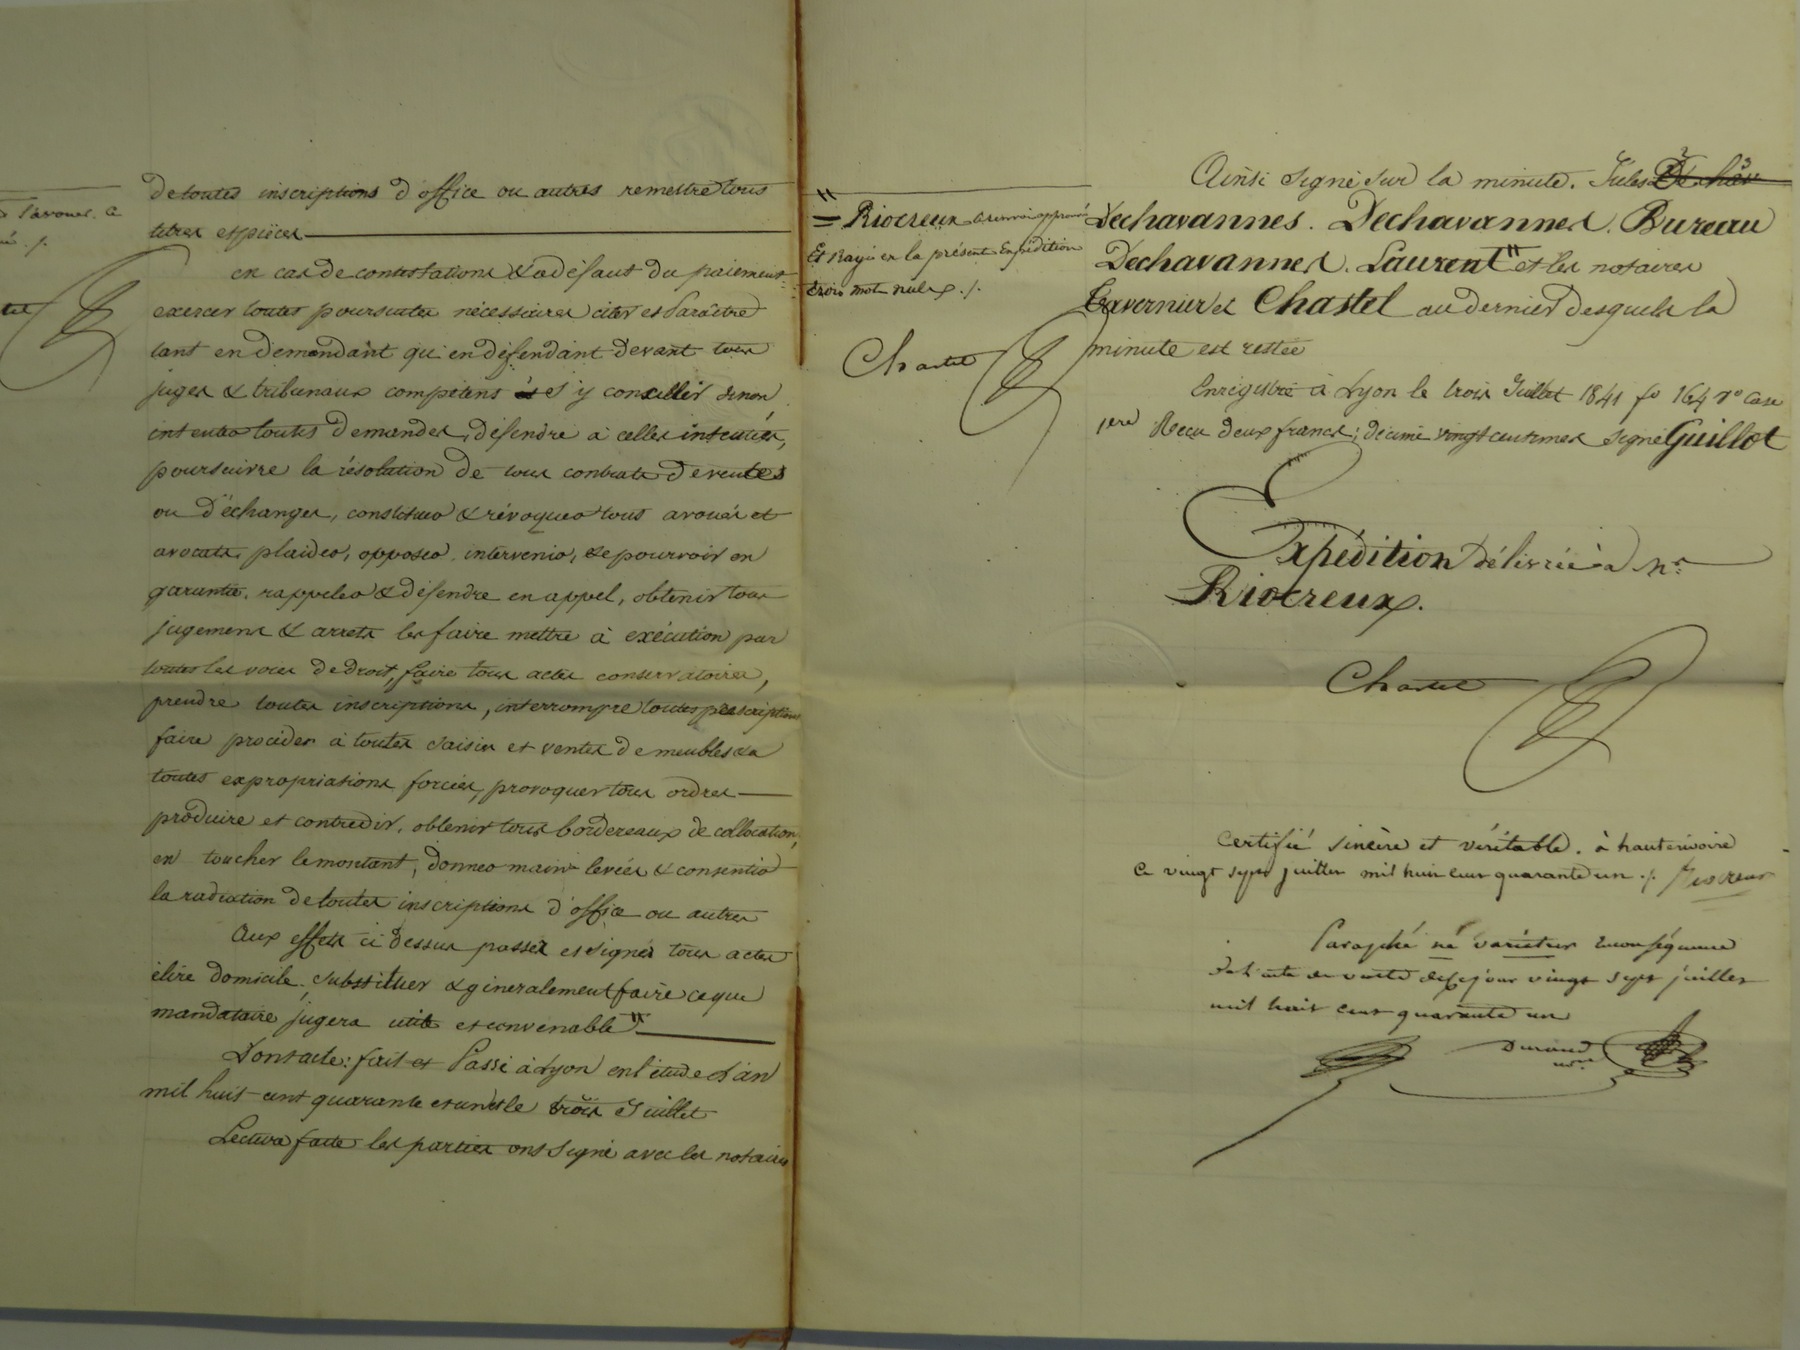 de toutes inscriptions d'office ou autres remettre tous
titres et pièces
en cas de contestations & à défaut du paiement
exercer toutes poursuites nécessaires citer et Paraître
tant en demandant qu'en défendant devant tous
juges & tribunaux compétens s'y concilier sinon
intenter toutes demandes, défendre à celles intentées,
poursuivre la résolution de tous contrats de ventes
ou d'échanges, constituer & révoquer tous avoués et
avocats, plaider, opposer, intervenir, se pourvoir en
garantie, rappeler & défendre en appel, obtenir tous
jugemens & arrets les faire mettre à exécution par
toutes les voies de droit, faire tous actes conservatoires,
prendre toutes inscriptions, interrompre toutes prescriptions
faire procéder à toutes saisies et ventes de meubles & a
toutes expropriations forcées, provoquer tous ordres
produire et contredir, obtenir tous bordereaux de collocation,
en toucher le montant, donner main levées & consentir
la radiation de toutes inscriptions d'office ou autres
Aux effets ci dessus passer et signer tous actes
élire domicile, substituer & généralement faire ce que
mandataire jugera utile et convenable "
Dont acte: fait et Passé à Lyon en l'étude L'an
mil huit cent quarante et un & le trois Juillet
Lecture faite les parties ont signé avec les notaires
"
= Riocreux le renvoi approuvé
Et Rayé en la présent Expédition
trois mots nuls ./.
Chastel
Ainsi signé sur la minute. Jules De chav
Dechavannes. Dechavannes. Bureau
Dechavannes. Laurent " et les notaires
Tavernier et Chastel au dernier desquels la
minute est restée
Enregistré à Lyon le trois Juillet 1841 fo 164 Vo Case
1ere Recu deux francs; décime vingt centimes signé Guillot
Expédition délivrée à Mr
Riocreux.
Chastel
Certifié sincère et véritable. à hauterivoire
Ce vingt sept juillet mil huit cent quarante un ./. Riocreux
Paraphé né variétur en conséquence
de l'acte de vente de ce jour vingt sept juillet
mil huit cent quarante un
Durand
nre